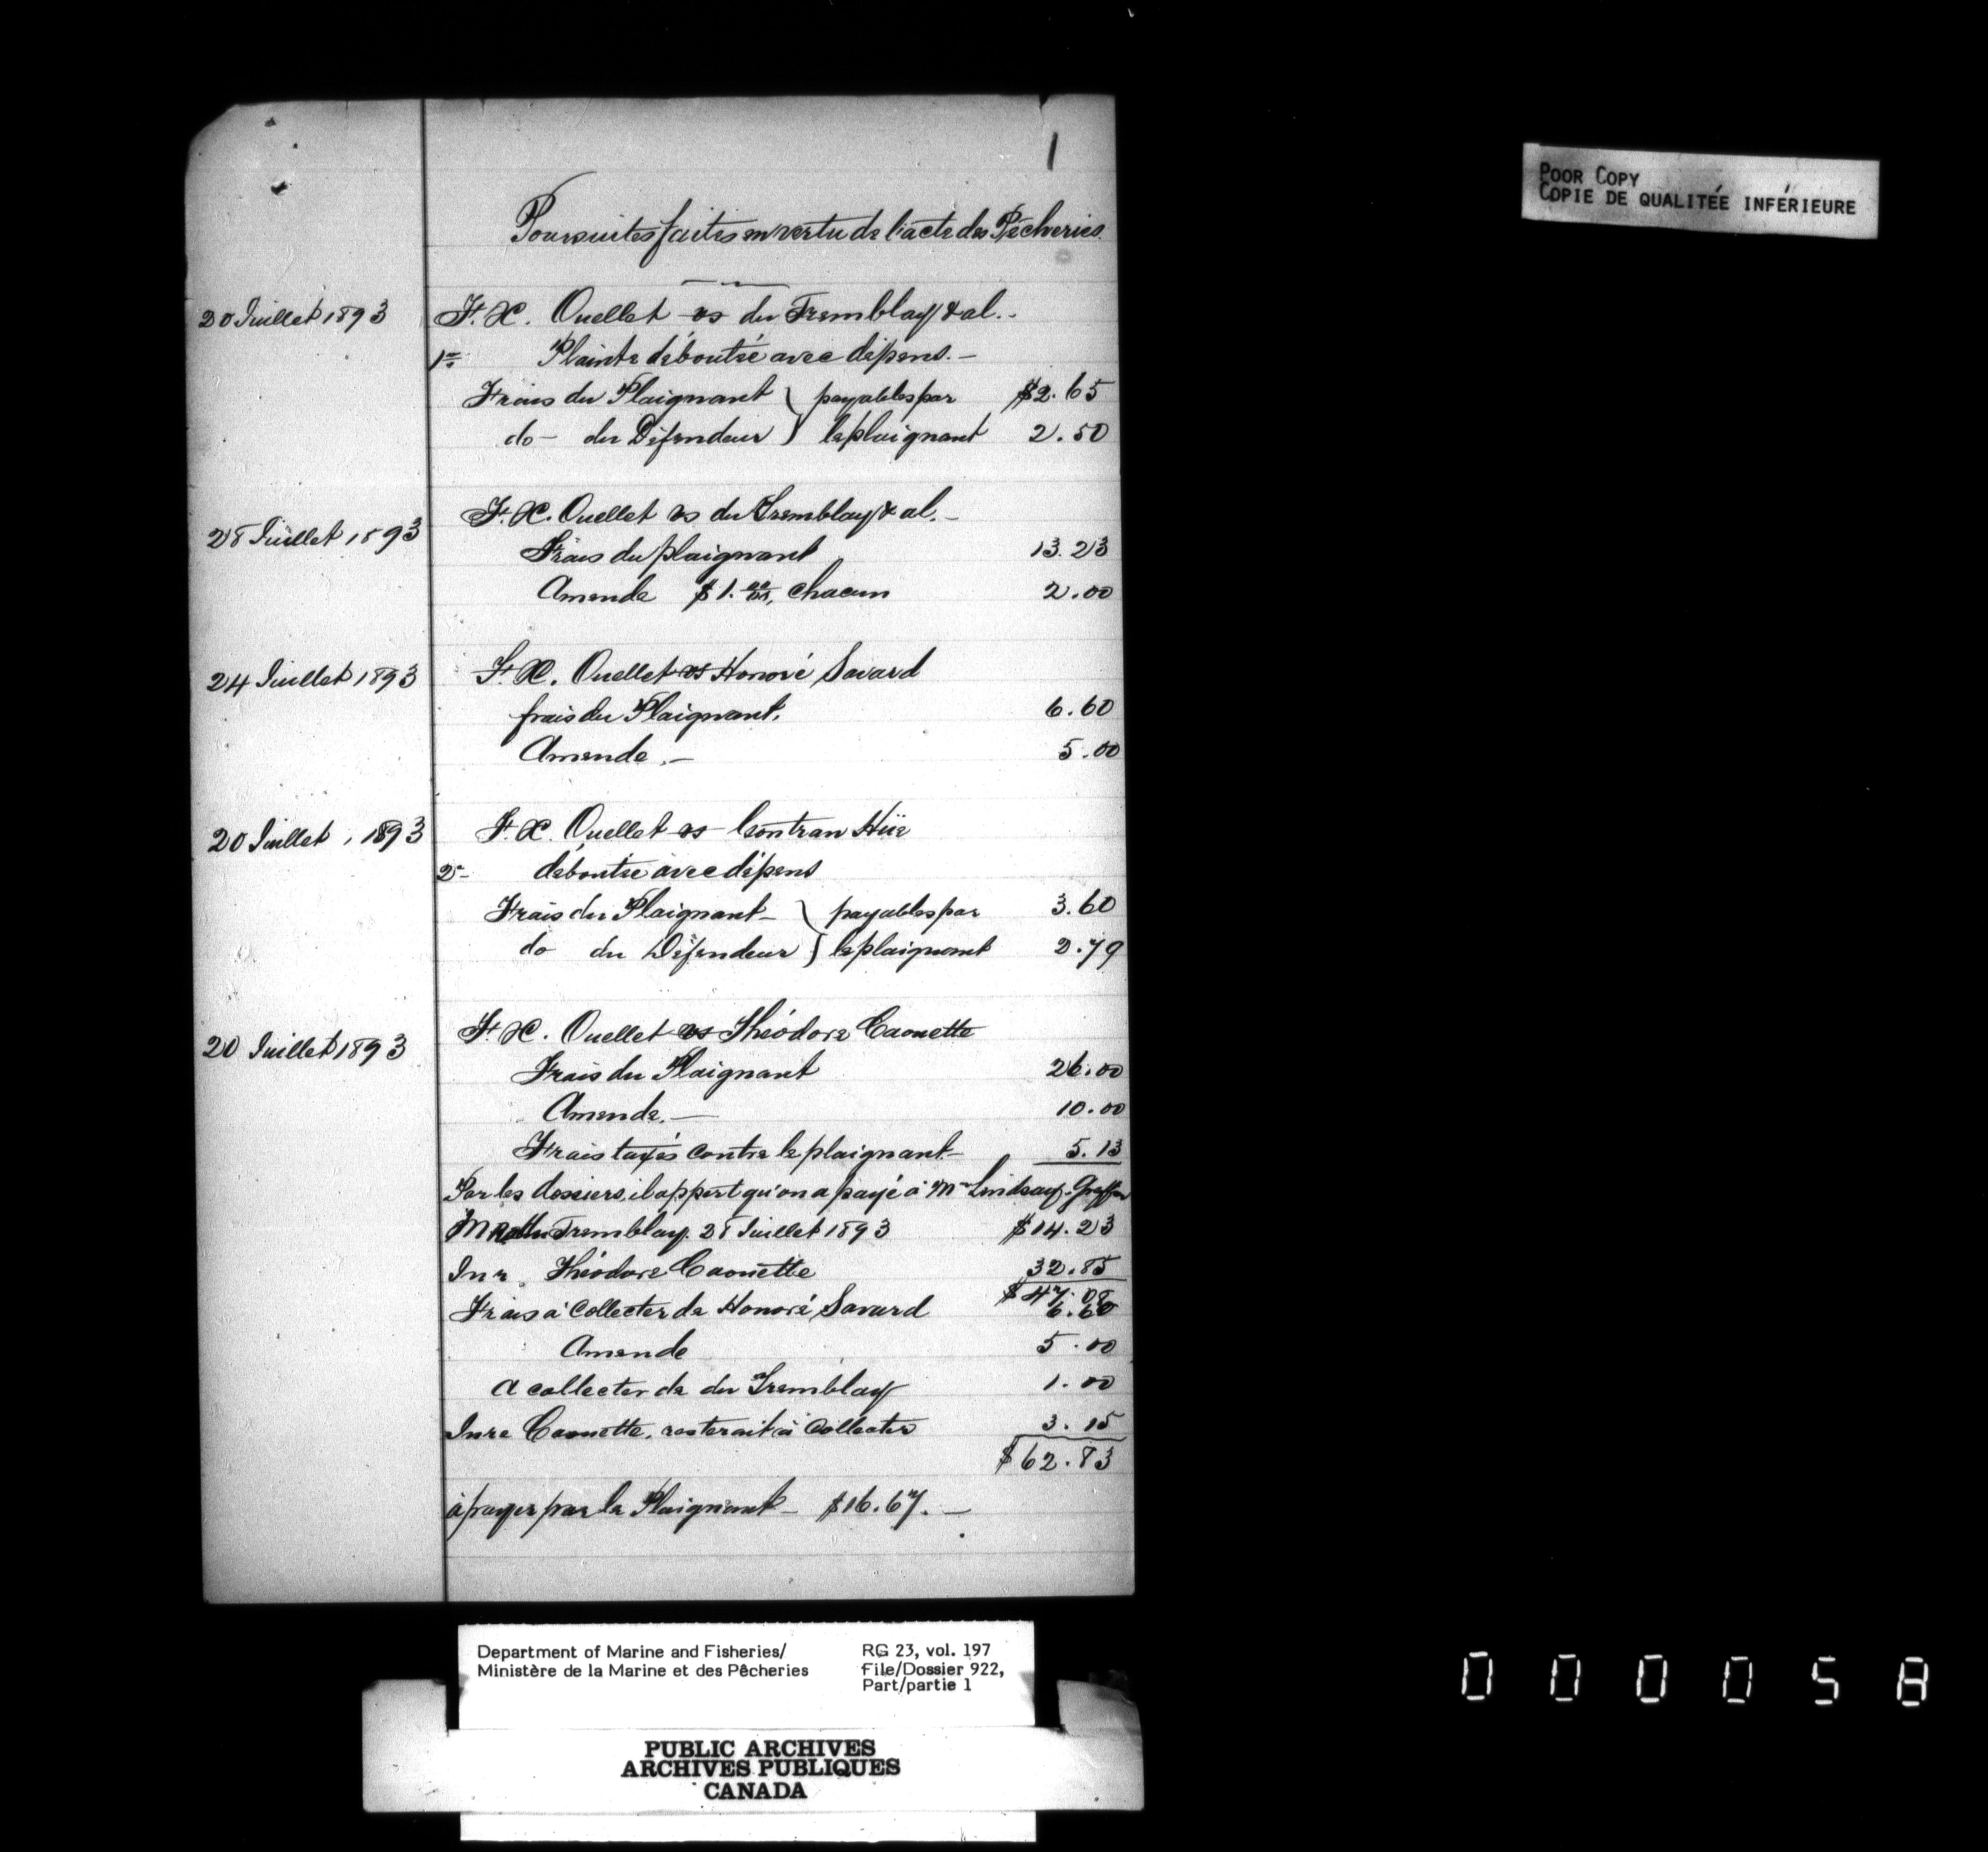 1
POOR COPY
COPIE DE QUALITÉE INFÉRIEURE
Poursuites faites en vertu de l'acte des Pêcheries.
20 Juillet 1893 F. X. Ouellet vs du Tremblay & al. -
1re Plainte déboutée avec dépens. -
Frais du Plaignant } payables par $2.65
do - du Défendeur } le plaignant 2.50
28 Juillet 1893 F. X. Ouellet vs du Tremblay & al. -
Frais du plaignant 13.23
Amende $1.00, chacun 2.00
24 Juillet 1893 F. X. Ouellet vs Honoré Savard
frais du Plaignant. 6.60
Amende. - 5.00
20 Juillet, 1893 F. X. Ouellet vs Gontran Hüe
2e déboutée avec dépens
Frais du Plaignant - } payables par 3.60
do du Défendeur } le plaignant 2.79
20 Juillet 1893 F. X. Ouellet vs Théodore Caouette
Frais du Plaignant 26.00
Amende. - 10.00
Frais taxés contre le plaignant - 5.13
Par les dossiers, il appert qu'on a payé à Mr Lindsay,
Tremblay. 28 Juillet 1893 $14.23
In re. Théodore Caouette 32.85
$47.08
Frais à Collecter de Honoré Savard 6.60
Amende 5.00
A collecter de du Tremblay 1.00
In re Caouette, resterait à Collecter 3.15
$62.83
à payer par le Plaignant - $16.67. -
Department of Marine and Fisheries/ RG 23, vol. 197
Ministère de la Marine et des Pêcheries File/Dossier 922,
Part/partie 1
000058
PUBLIC ARCHIVES
ARCHIVES PUBLIQUES
CANADA